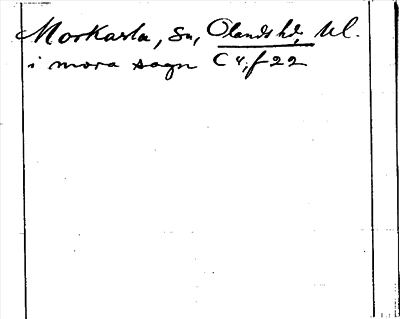 Morkarla, sn, Olands hd, Upl.
i mora sogn C 4; f 22